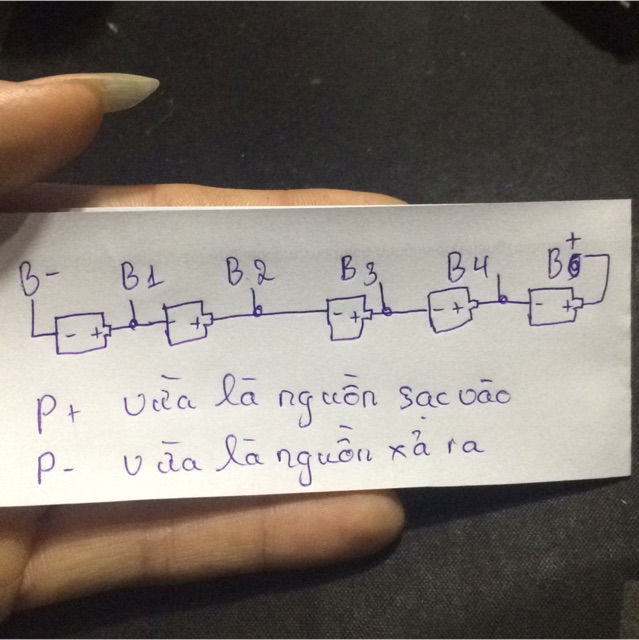 B- B1 B2 B3 B4 B+
- + - + - + - + - +
P+ vừa là nguồn sạc vào
P- vừa là nguồn xả ra